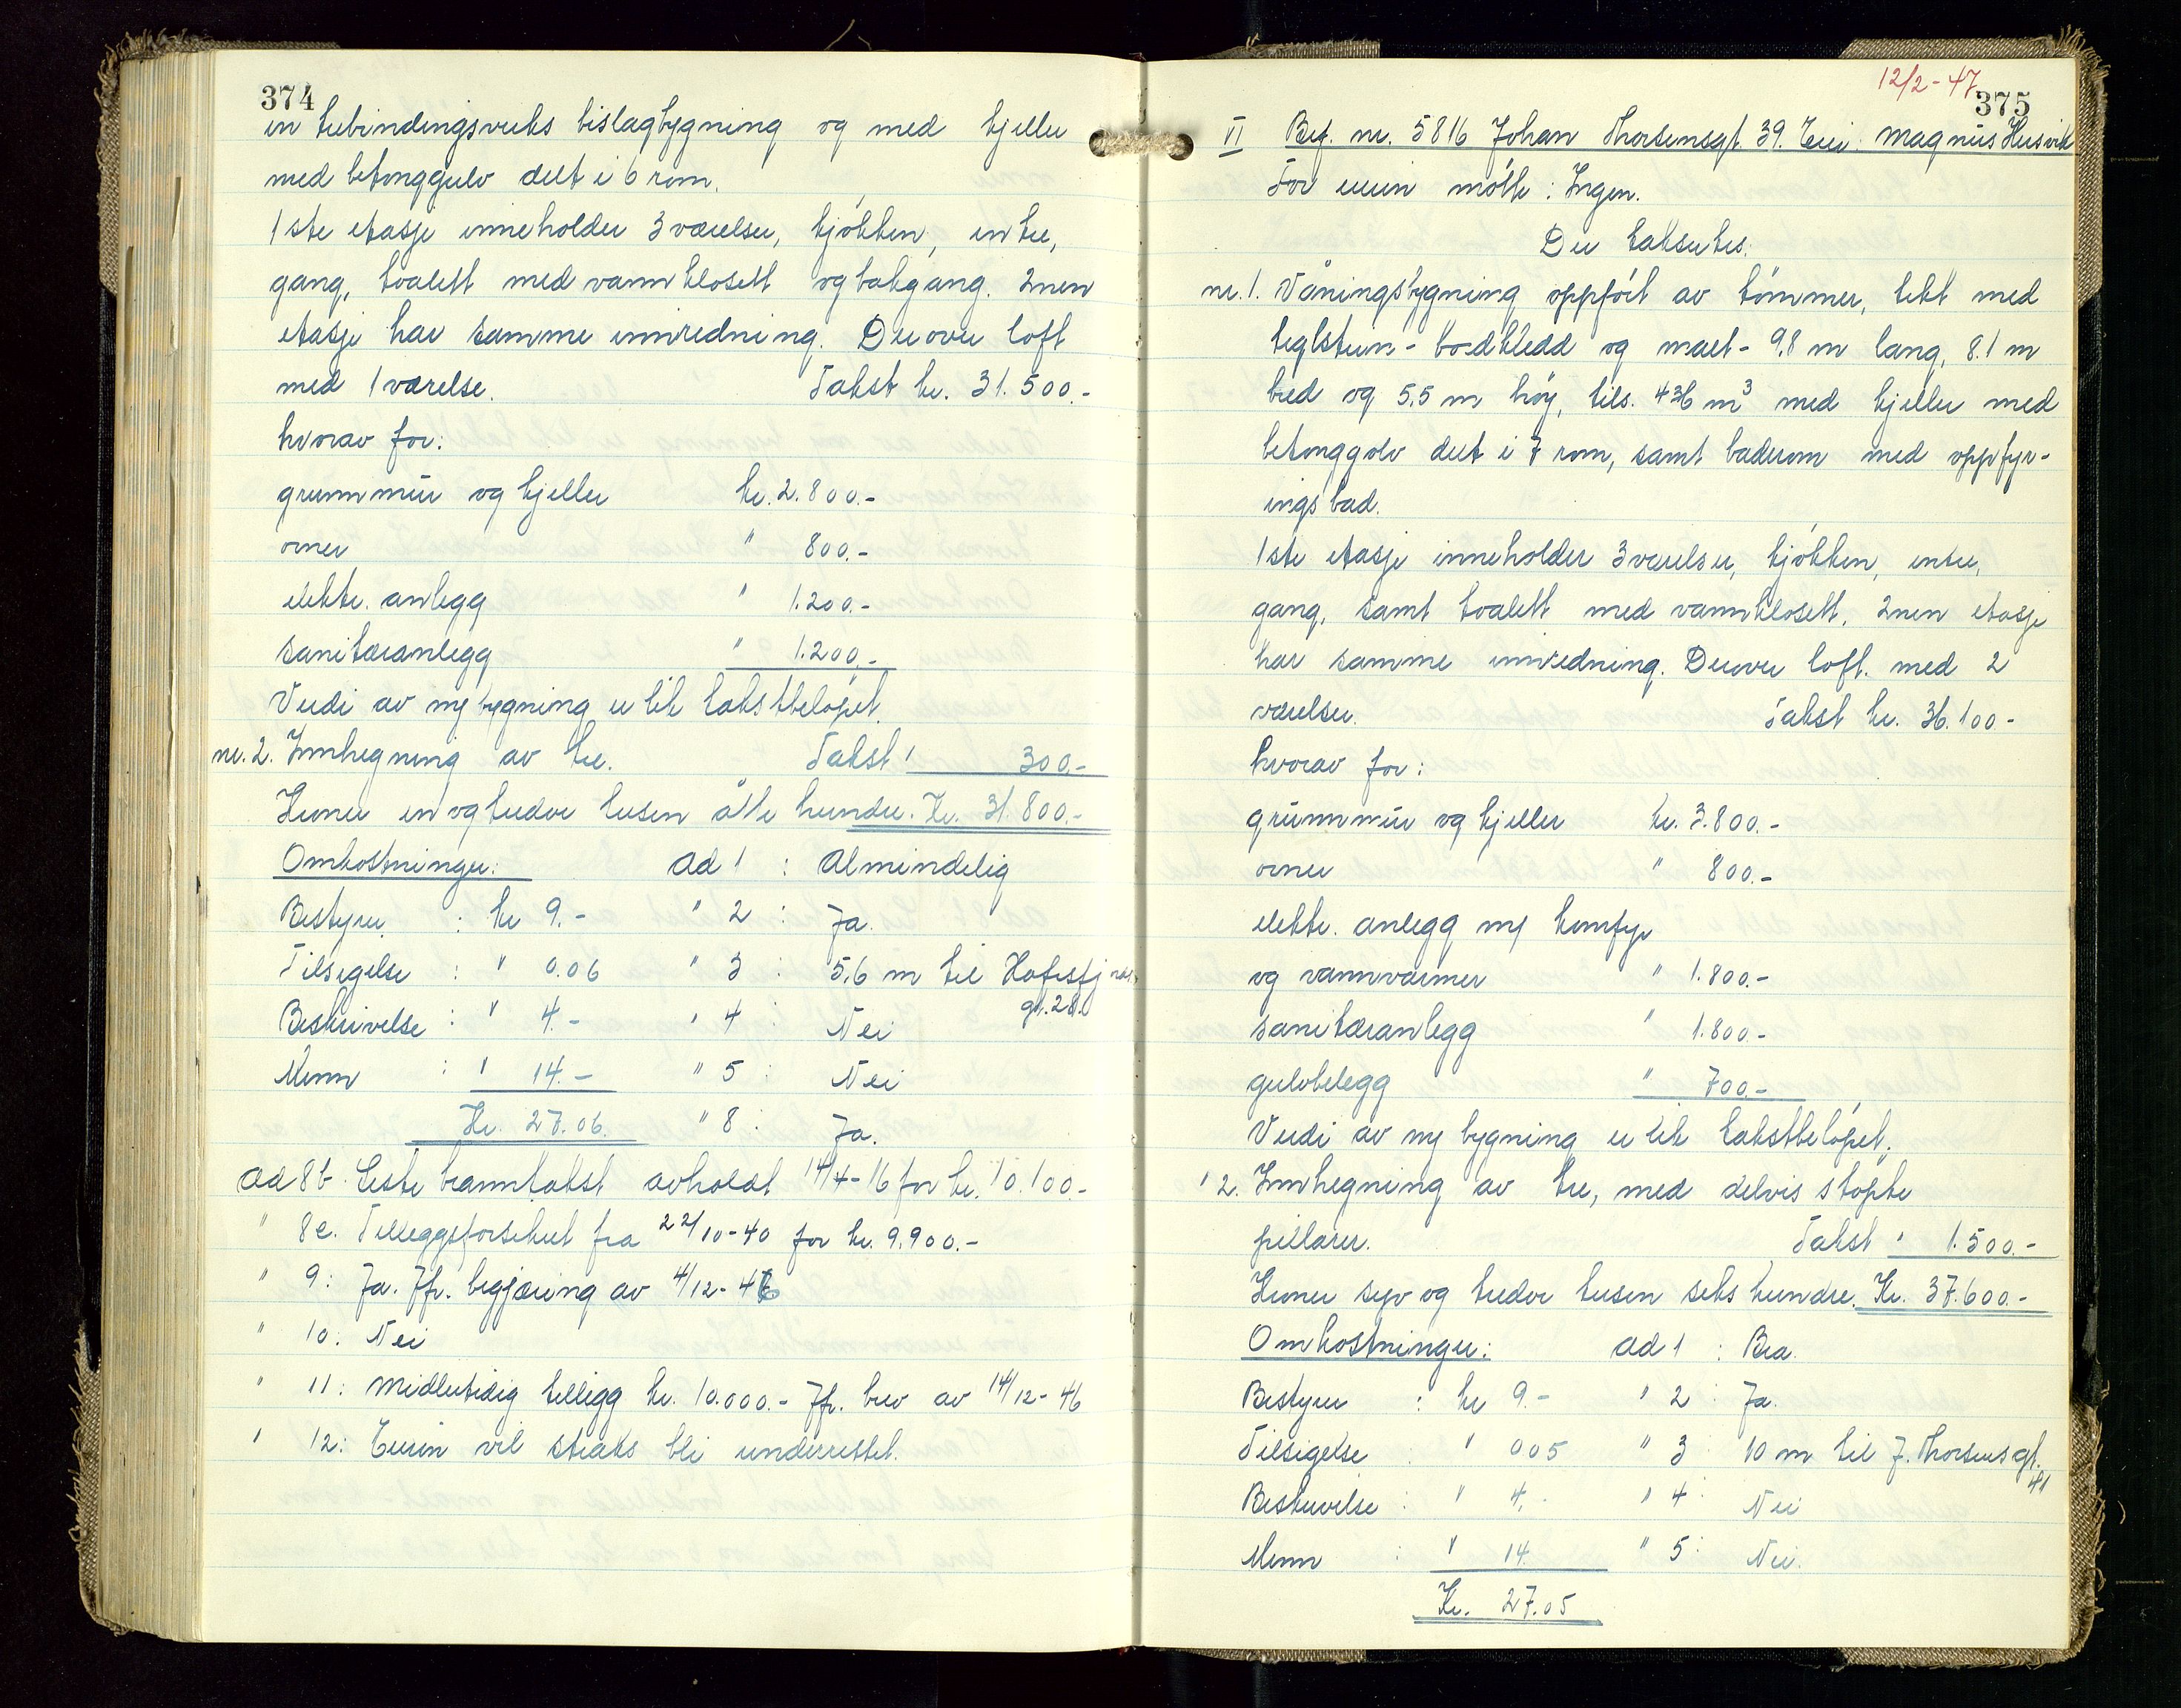 374
en utbindingsverks bislagbygning og med kjeller
med betonggulv delt i 6 rom.
1ste etasje inneholder 3 værelser, kjøkken, entre,
gang, toalett med vannklosett og bakgang. 2nen
etasje har samme innredning. Derover loft
med 1 værelse. Takst kr. 31.500.-
hvorav for:
grunnmur og kjeller kr. 2.800.-
ovner " 800.-
elektr. anlegg " 1.200.-
sanitæranlegg " 1.200.-
Verdi av ny bygning er lik takstbeløpet.
nr. 2. Innhegning av tre. Takst " 300.-
Kroner en og tredve tusen åtte hundre. Kr. 31.800.-
Omkostninger: ad 1 : Almindelig
Bestyrer : kr 9.- " 2 : Ja.
Tilsigelse : " 0.06 " 3 : 5,6 m til Hafrsfjords
gt. 28.
Beskrivelse : " 4.- " 4 : Nei
Menn : " 14.- " 5 : Nei
Kr. 27.06. " 8 : Ja.
ad 8b. Siste branntakst avholdt 14/4-16 for kr. 10.100.-
" 8c. Tilleggsforsikret fra 22/10-40 for kr. 9.900.-
" 9: Ja. Jfr. begjæring av 4/12-46
" 10: Nei
" 11: Midlertidig tillegg kr. 10.000.- Jfr. brev av 14/12-46
" 12: Eieren vil straks bli underrettet.
12/2-47
375
VI Bef. nr. 5816 Johan Thorsensgt. 39. Eier: Magnus Husvik
For eieren møtte: Ingen.
Der takseres:
nr. 1. Våningsbygning oppført av tømmer, tekt med
teglstein - bordkledd og malt - 9,8 m lang, 8.1 m
bred og 5.5 m høy, tils. 436 m3 med kjeller med
betonggolv delt i 7 rom, samt baderom med oppfyr-
ings bad.
1ste etasje inneholder 3 værelser, kjøkken, entre,
gang, samt toalett med vannklosett. 2nen etasje
har samme innredning. Derover loft. med 2
værelser. Takst kr. 36.100-
hvorav for:
grunnmur og kjeller kr. 3.800.-
ovner " 800.-
elektr. anlegg m/ komfyr
og vannvarmer " 1.800.-
sanitæranlegg " 1.800.-
gulvbelegg " 700.-
Verdi av ny bygning er lik takstbeløpet.
" 2. Innhegning av tre, med delvis støpte
pillarer. Takst " 1.500.-
Kroner syv og tredve tusen seks hundre. Kr. 37.600.-
Omkostninger: ad 1 : Bra.
Bestyrer : kr 9.- " 2 : Ja.
Tilsigelse " 0 05 " 3 : 10 m til J. Thorsensgt.
41
Beskrivelse : " 4.- " 4 : Nei
Menn : " 14. " 5 : Nei.
Kr. 27.05